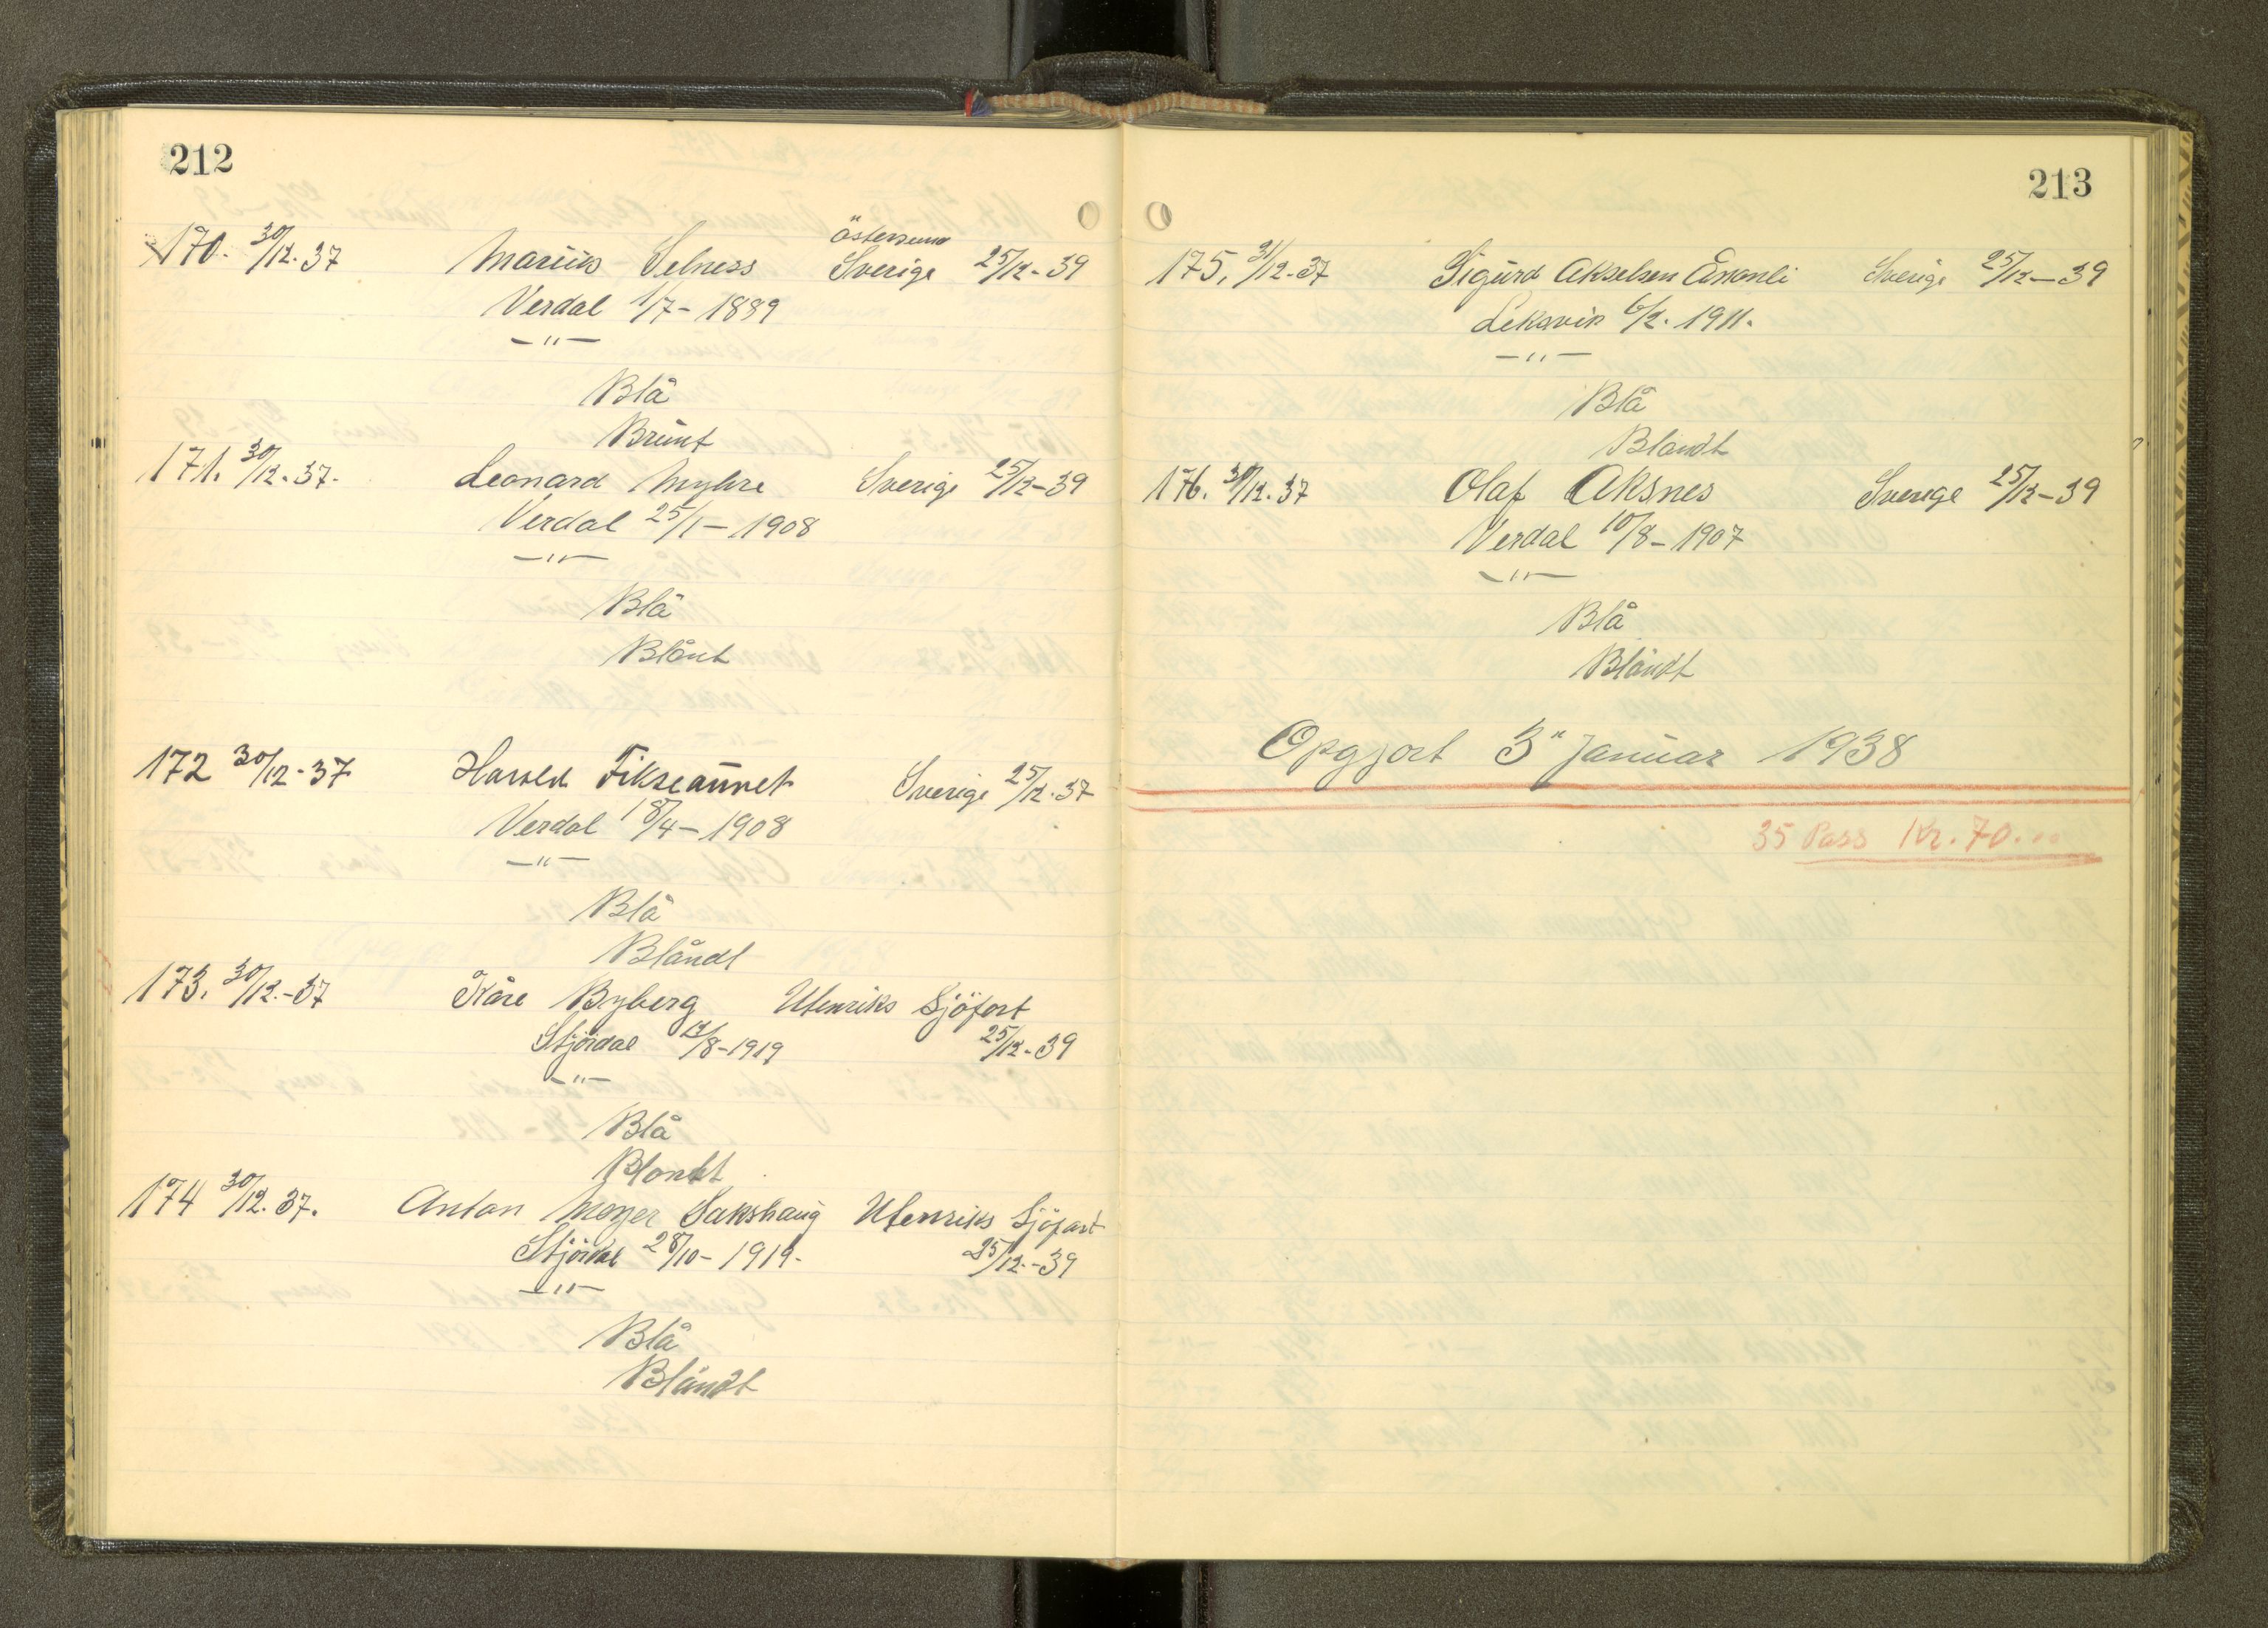 212
170. 30/12. 37 Marius Selness Östersund Sverige 25/12 - 39
Verdal 1/7 - 1889
— " —
Blå
Brunt
171. 30/12. 37. Leonard Myhre Sverige 25/12 - 39
Verdal 25/1 - 1908
— " —
Blå
Blånt
172 30/12 - 37 Harald Fikseaunet Sverige 25/12. 37
Verdal 18/4 - 1908
— " —
Blå
Blåndt
173. 30/12. - 37 Kåre Byberg Utenriks Sjöfart
Stjördal 12/8 - 1919 25/12. 39
— " —
Blå
Blondt
174 30/12. 37. Anton Meyer Sakshaug Utenriks Sjöfart
Stjördal 28/10 - 1919. 25/12. - 39
— " —
Blå
Blåndt
213
175. 31/12. 37 Sigurd Akselsen Sverige 25/12 - 39
Leksvik 6/2. 1911.
— " —
Blå
Blandt
176. 31/12. 37 Olaf Aksnes Sverige 25/12 - 39
Verdal 10/8 - 1907
— " —
Blå
Blåndt
Opgjort 3" Januar 1938
35 Pass Kr. 70...